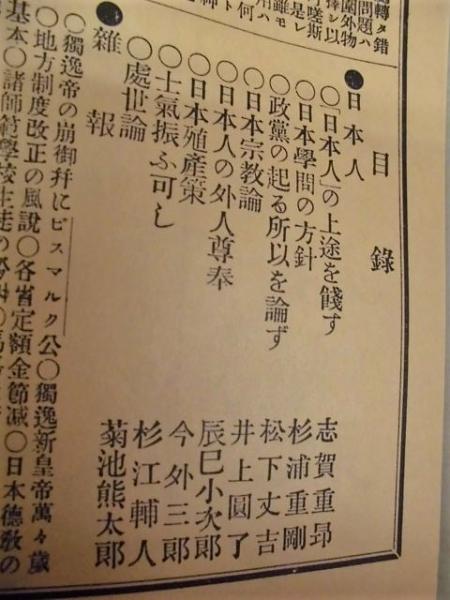 轉タ錯
問題ハ
外物
シ以
嗟斯
是レ
雖モ
何
目錄
●日本人
○「日本人」の上途を餞す 志賀重昂
○日本學問の方針 杉浦重剛
○政黨の起る所以を論ず 松下丈吉
○日本宗敎論 井上圓了
○日本人の外人尊奉 辰巳小次郎
○日本殖產策 今外三郎
○士氣振ふ可し 杉江輔人
○處世論 菊池熊太郎
●雜報
○獨逸帝の崩御幷にビスマルク公○獨逸新皇帝萬々歲
○地方制度改正の風說○各省定額金節減○日本德敎の
基本○諸師範學校生徒の